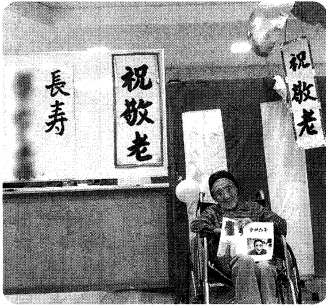 長寿
祝敬老
祝敬老